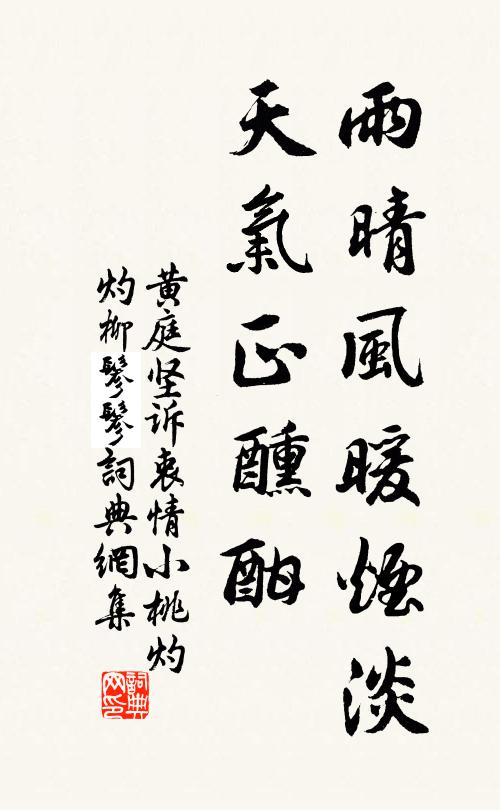 雨晴風暖煙淡
天氣正醺酣
黄庭坚诉衷情小桃灼
灼柳鬖鬖詞典網集
詞典网印